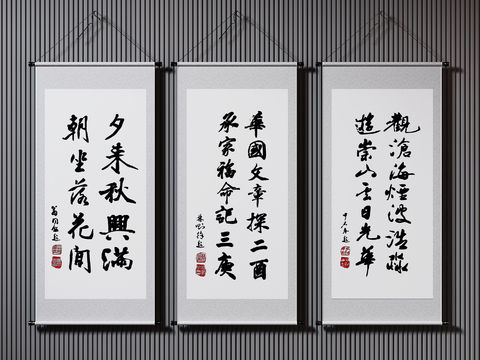 夕来秋興滿
朝坐落花間
華國文章探二酉
承家福命記三庚
觀滄海煙波浩渺
遊崇山云日光華